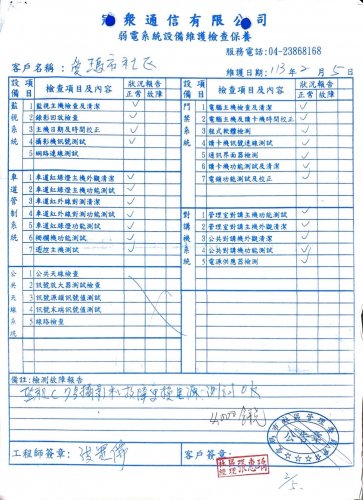 衆通信有限公司
弱電系統設備維護檢查保養
服務電話:04-23868168
客戶名稱:
維護日期:113年2月5日
設備 項目 檢查項目及內容 狀況報告 正常 故障
設備 項目 檢查項目及內容 狀況報告 正常 故障
監視系統
1 監視主機檢查及清潔 ✓
2 錄影回放檢查 ✓
3 主機日期及時間校正 ✓
4 攝影機訊號測試 ✓
5 網路連線測試
門禁系統
1 電腦主機檢查及清潔 ✓
2 電腦主機及讀卡機時間校正 ✓
3 程式軟體檢測 ✓
4 讀卡機訊號連線測試 ✓
5 通訊界面器檢測 ✓
6 讀卡機功能測試及清潔 ✓
7 電鎖功能測試及校正 ✓
車道管制系統
1 車道紅綠燈主機外觀清潔 ✓
2 車道紅綠燈主機功能測試 ✓
3 車道紅綠燈功能測試 ✓
4 車道紅外線對測功能測試 ✓
5 車道紅外線外觀清潔 ✓
6 柵欄機功能測試 ✓
7 遙控主機測試 ✓
對講機系統
1 管理室對講主機功能測試 ✓
2 管理室對講主機外觀清潔 ✓
3 公共對講機外觀清潔 ✓
4 公共對講機功能測試 ✓
5 電源供應器檢測 ✓
公共天線
1 公共天線檢查
2 訊號放大器測試檢查
3 訊號源頭訊號值測試
4 訊號末端訊號值測試
5 線路檢查
備註:檢測故障報告
OK
4,000
公告章
工程師簽章:
客戶簽章:
2/5.